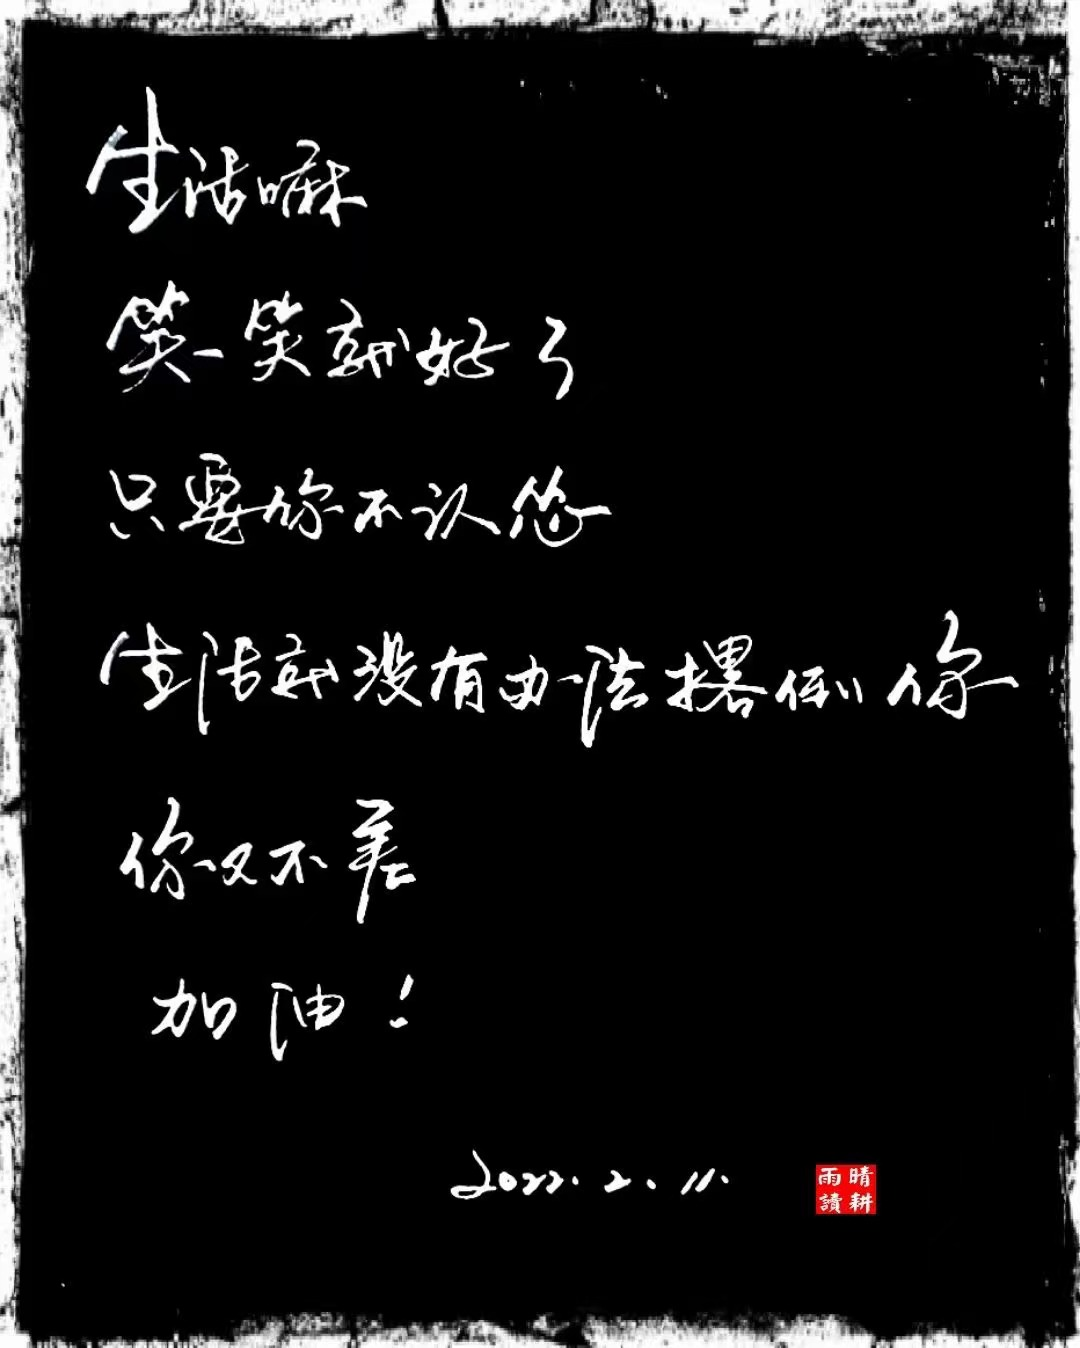 生活嘛
笑一笑就好了
只要你不认怂
生活就没有办法撂倒你
你又不差
加油！
2022.2.11.
晴耕
雨讀